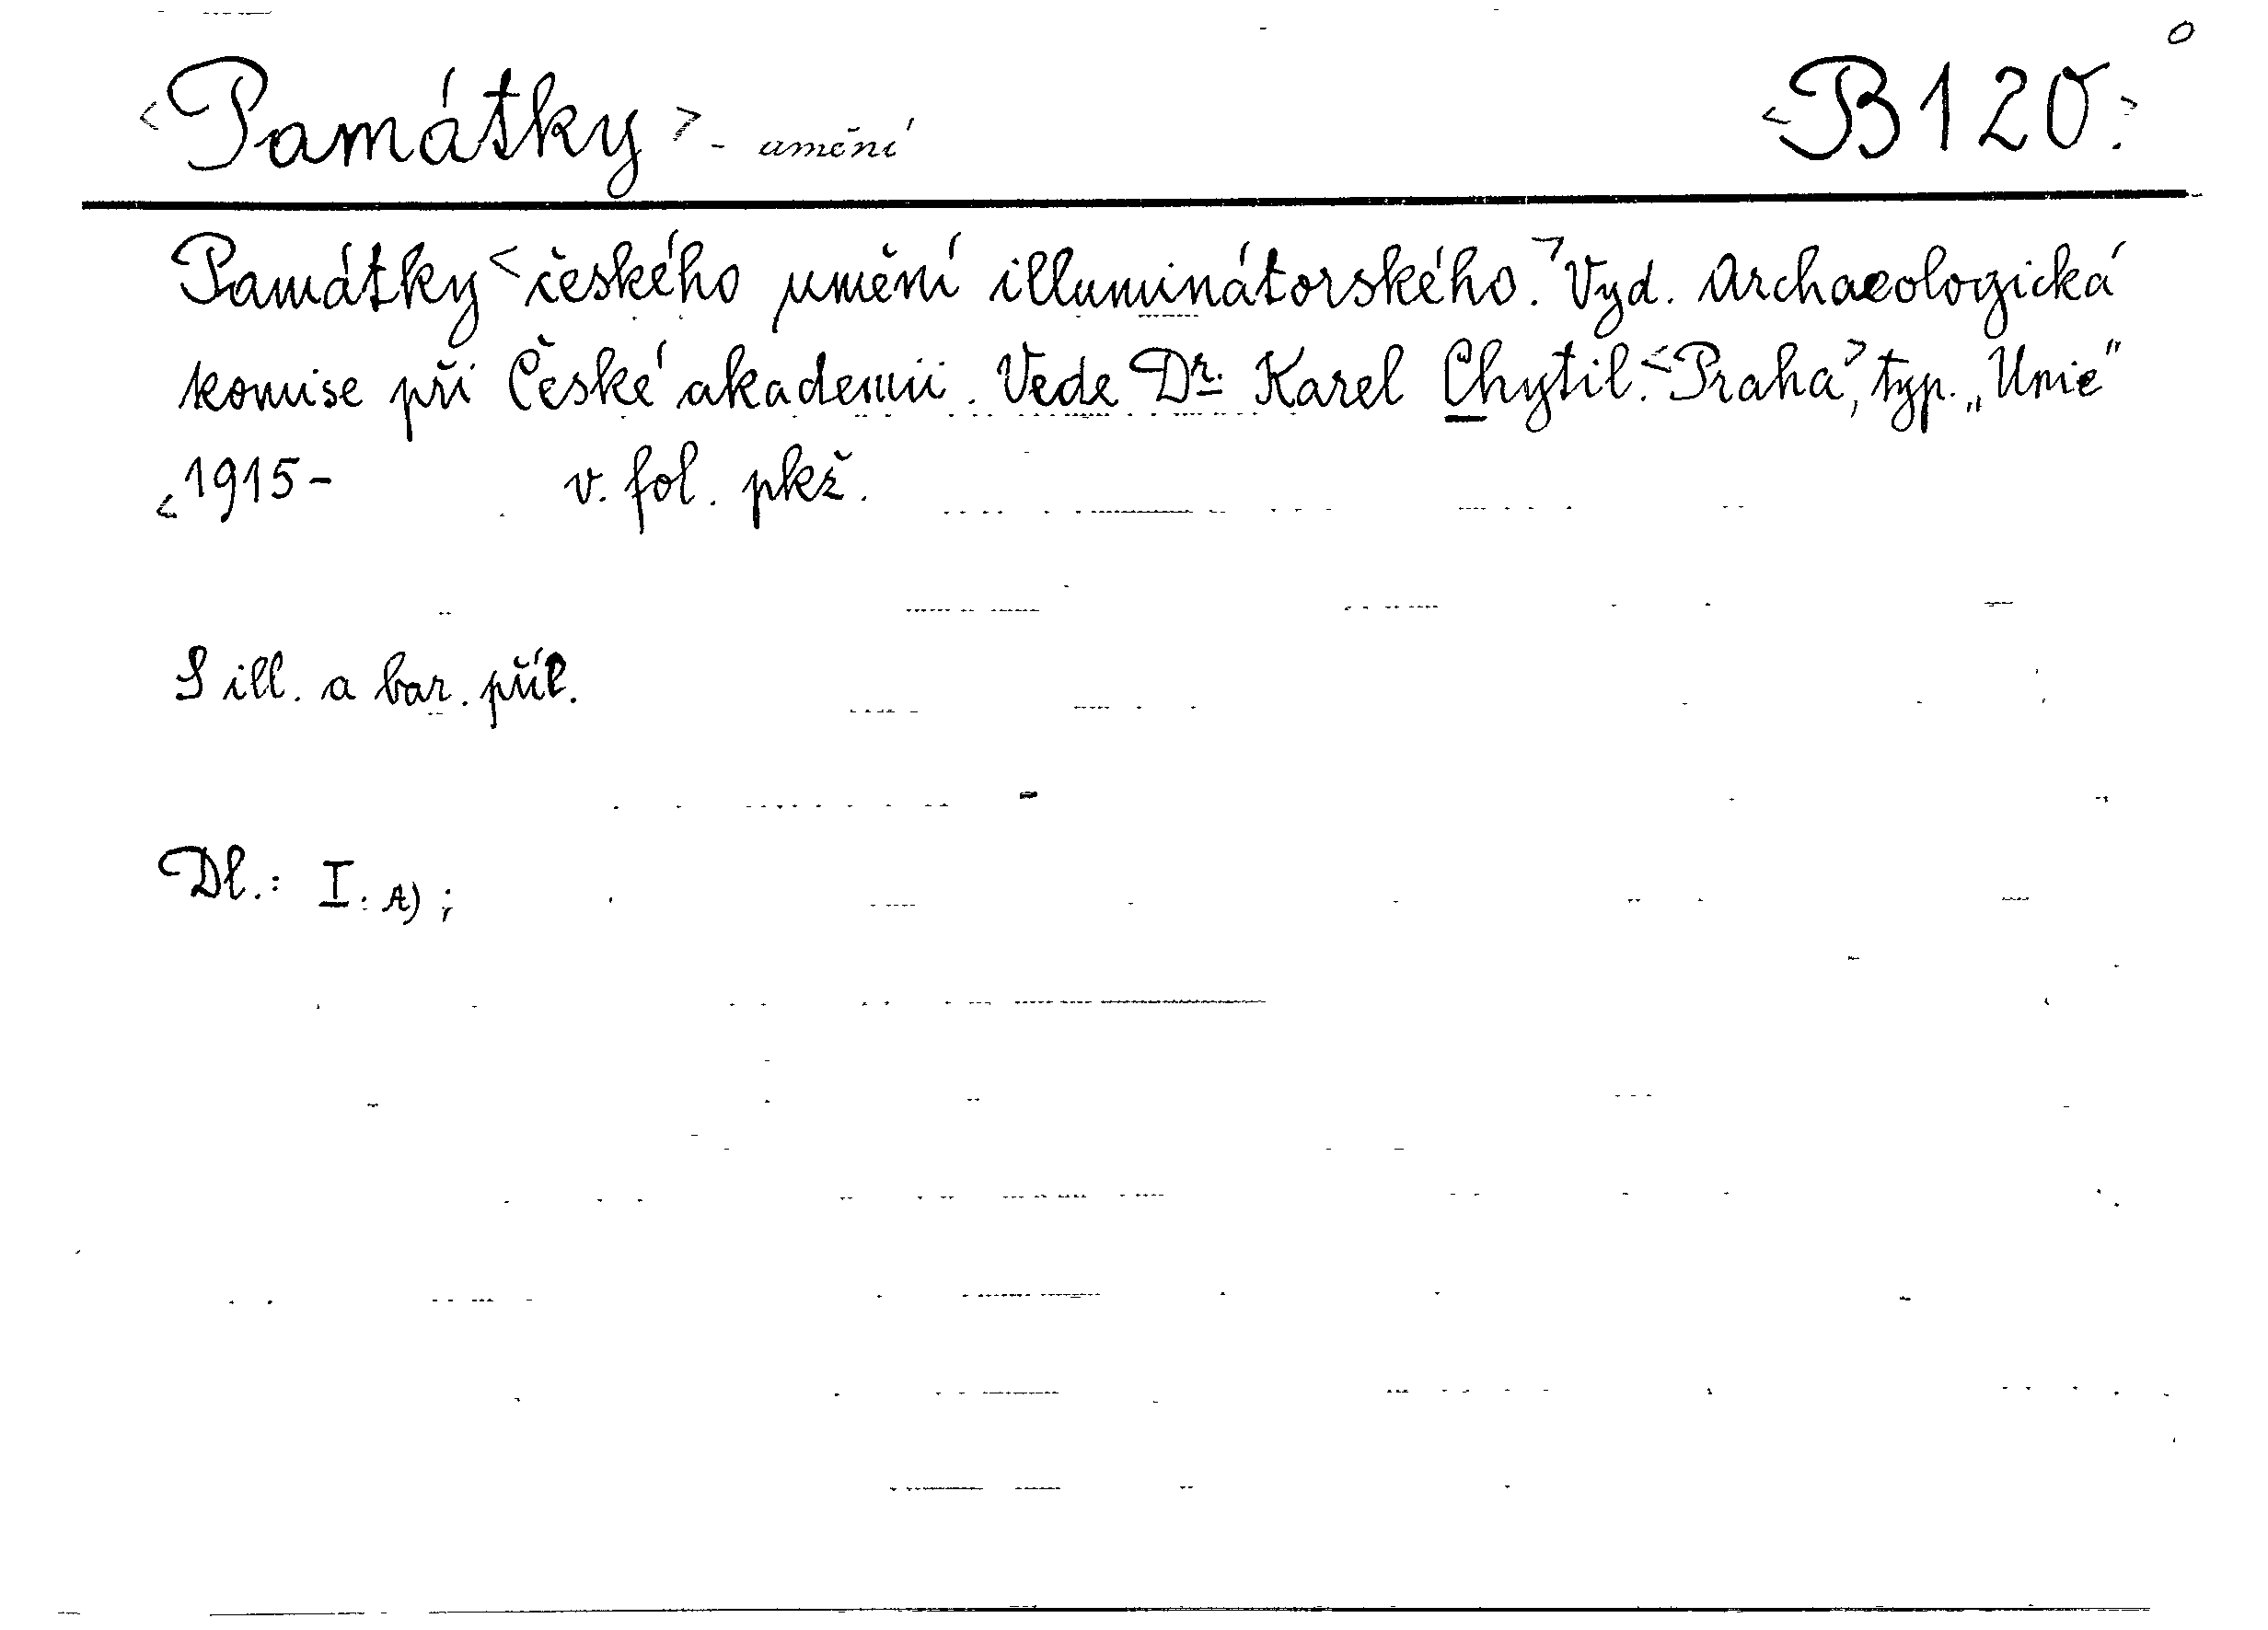 <Památky> - umění <B 120.>
Památky <českého umění illuminátorského.> Vyd. Archaeologická
komise při České akademii. Vede Dr. Karel Chytil. <Praha>, typ. „Unie"
<1915- v. fol. pkž.
S ill. a bar. příl.
Dl.: I. A) ;